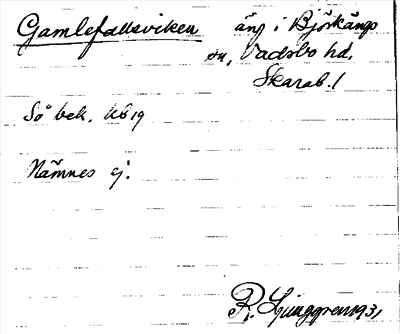 Gamlefallsviken äng i Björkängs
sn, Vadsbo hd,
Skarab. l
Så bek. Ub 19
Nämnes ej.
R. Ljunggren 1931